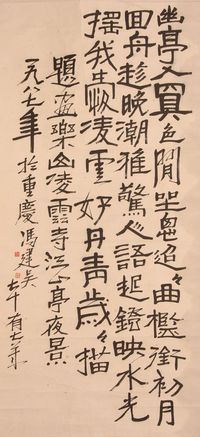 幽亭入冥色閒坐思迢々曲檻銜初月
回舟趁晚潮雅驚人語促鐙映水光
搖我凌雲好丹青歲々描
題畫樂山凌雲寺江亭夜景
一九八七年於重慶馮建吳七十有七